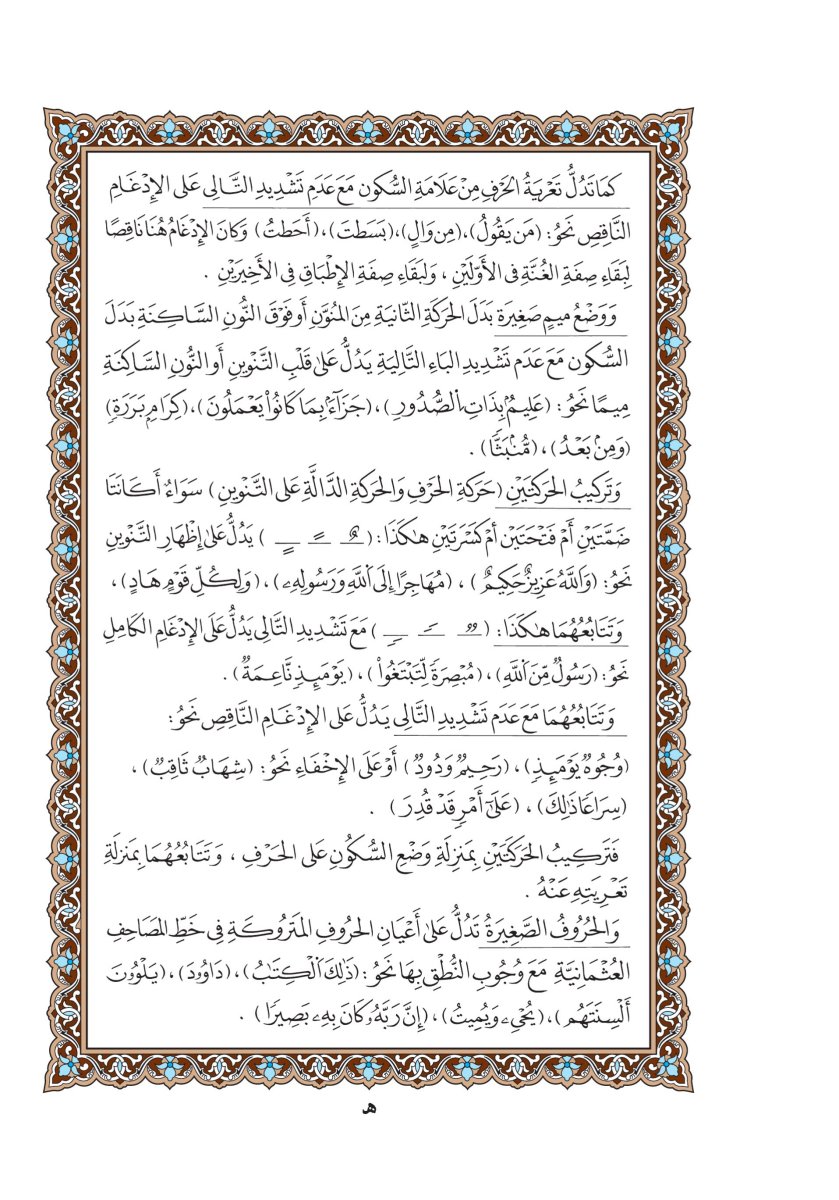 كَمَا تَدُلُّ تَعْرِيَةُ الحَرْفِ مِنْ عَلَامَةِ السُّكُون مَعَ عَدَمِ تَشْدِيدِ التَّالِى عَلَى الإِدْغَامِ
النَّاقِصِ نَحْوُ: (مَن يَقُولُ)،(مِن وَالٍ)،(بَسَطتَ)،(أَحَطتُ) وَكَانَ الإِدْغَامُ هُنَا نَاقِصًا
لِبَقَاءِ صِفَةِ الغُنَّةِ فِى الأَوَّلَيْنِ ، وَلِبَقَاءِ صِفَةِ الإِطْبَاقِ فِى الأَخِيرَيْنِ .
وَوَضْعُ مِيمٍ صَغِيرَةٍ بَدَلَ الحَرَكَةِ الثَّانِيَةِ مِنَ المُنَوَّنِ أَو فَوْقَ النُّونِ السَّاكِنَةِ بَدَلَ
السُّكُون مَعَ عَدَم تَشْدِيدِ البَاءِ التَّالِيَةِ يَدُلُّ عَلَىٰ قَلْبِ التَّنْوِينِ أَو النُّونِ السَّاكِنَةِ
مِيمًا نَحْوُ: (عَلِيمُۢ بِذَاتِ ٱلصُّدُورِ)،(جَزَآءَۢ بِمَا كَانُوا۟ يَعْمَلُونَ)،(كِرَامِۭ بَرَرَةٖ)
(وَمِنۢ بَعْدُ)،(مُّنۢبَثّٗا) .
وَتَركِيبُ الحَرَكتَيْنِ (حَرَكَةِ الحَرْفِ وَالحَرَكةِ الدَّالَّةِ عَلى التَّنْوِينِ) سَوَاءٌ أَكَانَتَا
ضَمَّتَيْنِ أَمْ فَتْحَتَيْنِ أَمْ كَسْرَتَيْنِ هٰكَذَا: ( ـٌ ـً ـٍ ) يَدُلُّ عَلىٰ إِظْهَارِ التَّنْوِينِ
نَحْوُ: (وَٱللَّهُ عَزِيزٌ حَكِيمٌ) ، (مُهَاجِرًا إِلَى ٱللَّهِ وَرَسُولِهِۦ)، (وَلِكُلِّ قَوْمٍ هَادٍ)،
وَتَتَابُعُهُمَا هٰكَذَا: ( ـٞ ـٗ ـٖ ) مَعَ تَشْدِيدِ التَّالِى يَدُلُّ عَلَى الإِدْغَامِ الكَامِلِ
نَحْوُ: (رَسُولٞ مِّنَ ٱللَّهِ)، (مُبْصِرَةٗ لِّتَبْتَغُوا۟)، (يَوْمَئِذٖ نَّاعِمَةٞ).
وَتَتَابُعُهُمَا مَعَ عَدَمِ تَشْدِيدِ التَّالِى يَدُلُّ عَلى الإِدْغَامِ النَّاقِصِ نَحْوُ:
(وُجُوهٞ يَوْمَئِذٖ)، (رَحِيمٞ وَدُودٞ) أَوْ عَلَى الإِخْفَاءِ نَحْوُ: (شِهَابٞ ثَاقِبٞ)،
(سِرَاعٗا ذَٰلِكَ)، (عَلَىٰٓ أَمْرٖ قَدْ قُدِرَ) .
فَتَركِيبُ الحَرَكَتَيْنِ بِمَنزِلَةِ وَضْعِ السُّكُونِ عَلى الحَرْفِ ، وَتَتَابُعُهُمَا بِمَنزِلَةِ
تَعْرِيَتِهِ عَنْهُ .
وَالحُرُوفُ الصَّغِيرَةُ تَدُلُّ عَلىٰ أَعْيَانِ الحُرُوفِ المَتْرُوكَةِ فِى خَطِّ المَصَاحِفِ
العُثْمَانِيَّةِ مَعَ وُجُوبِ النُّطْقِ بِهَا نَحْوُ: (ذَٰلِكَ ٱلْكِتَٰبُ)، (دَاوُۥدَ)، (يَلْوُۥنَ
أَلْسِنَتَهُم)، (يُحْىِۦ وَيُمِيتُ)، (إِنَّ رَبَّهُۥ كَانَ بِهِۦ بَصِيرٗا) .
هـ